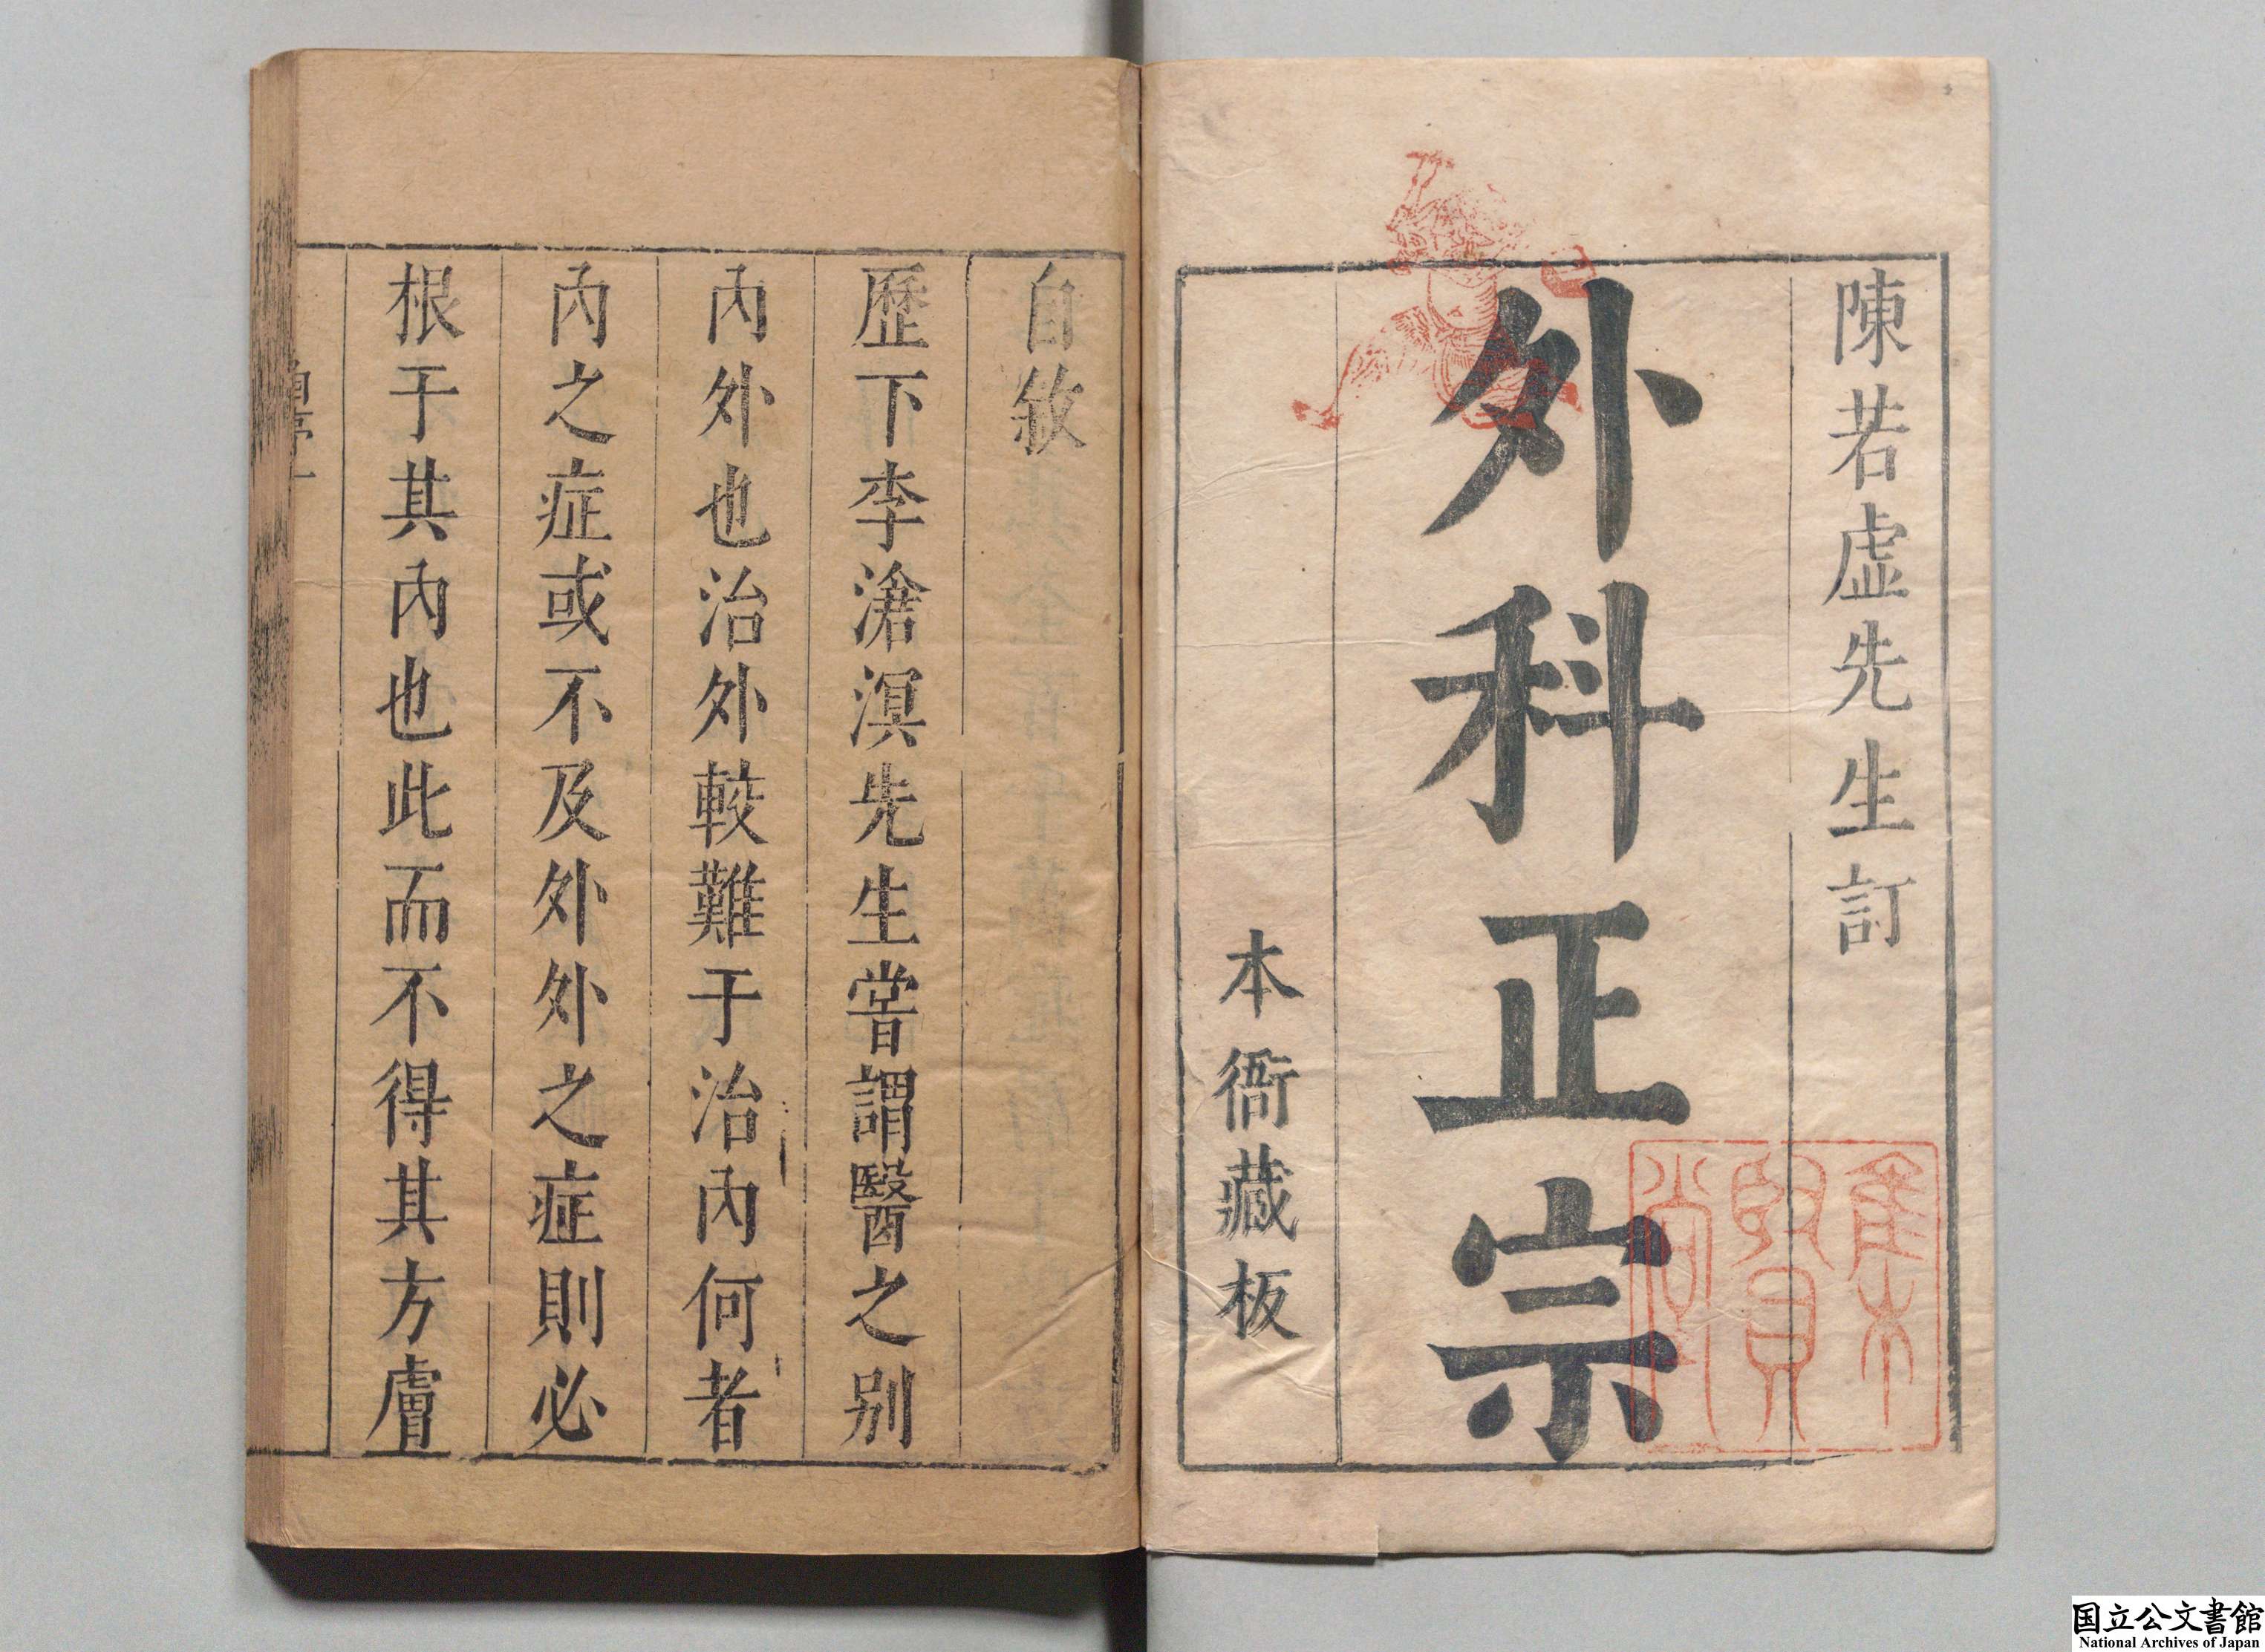 陳若虛先生訂
外科正宗
本衙藏板
自敘
歷下李滄溟先生嘗謂醫之別
內外也治外較難于治內何者
內之症或不及外外之症則必
根于其內也此而不得其方膚
国立公文書館
National Archives of Japan